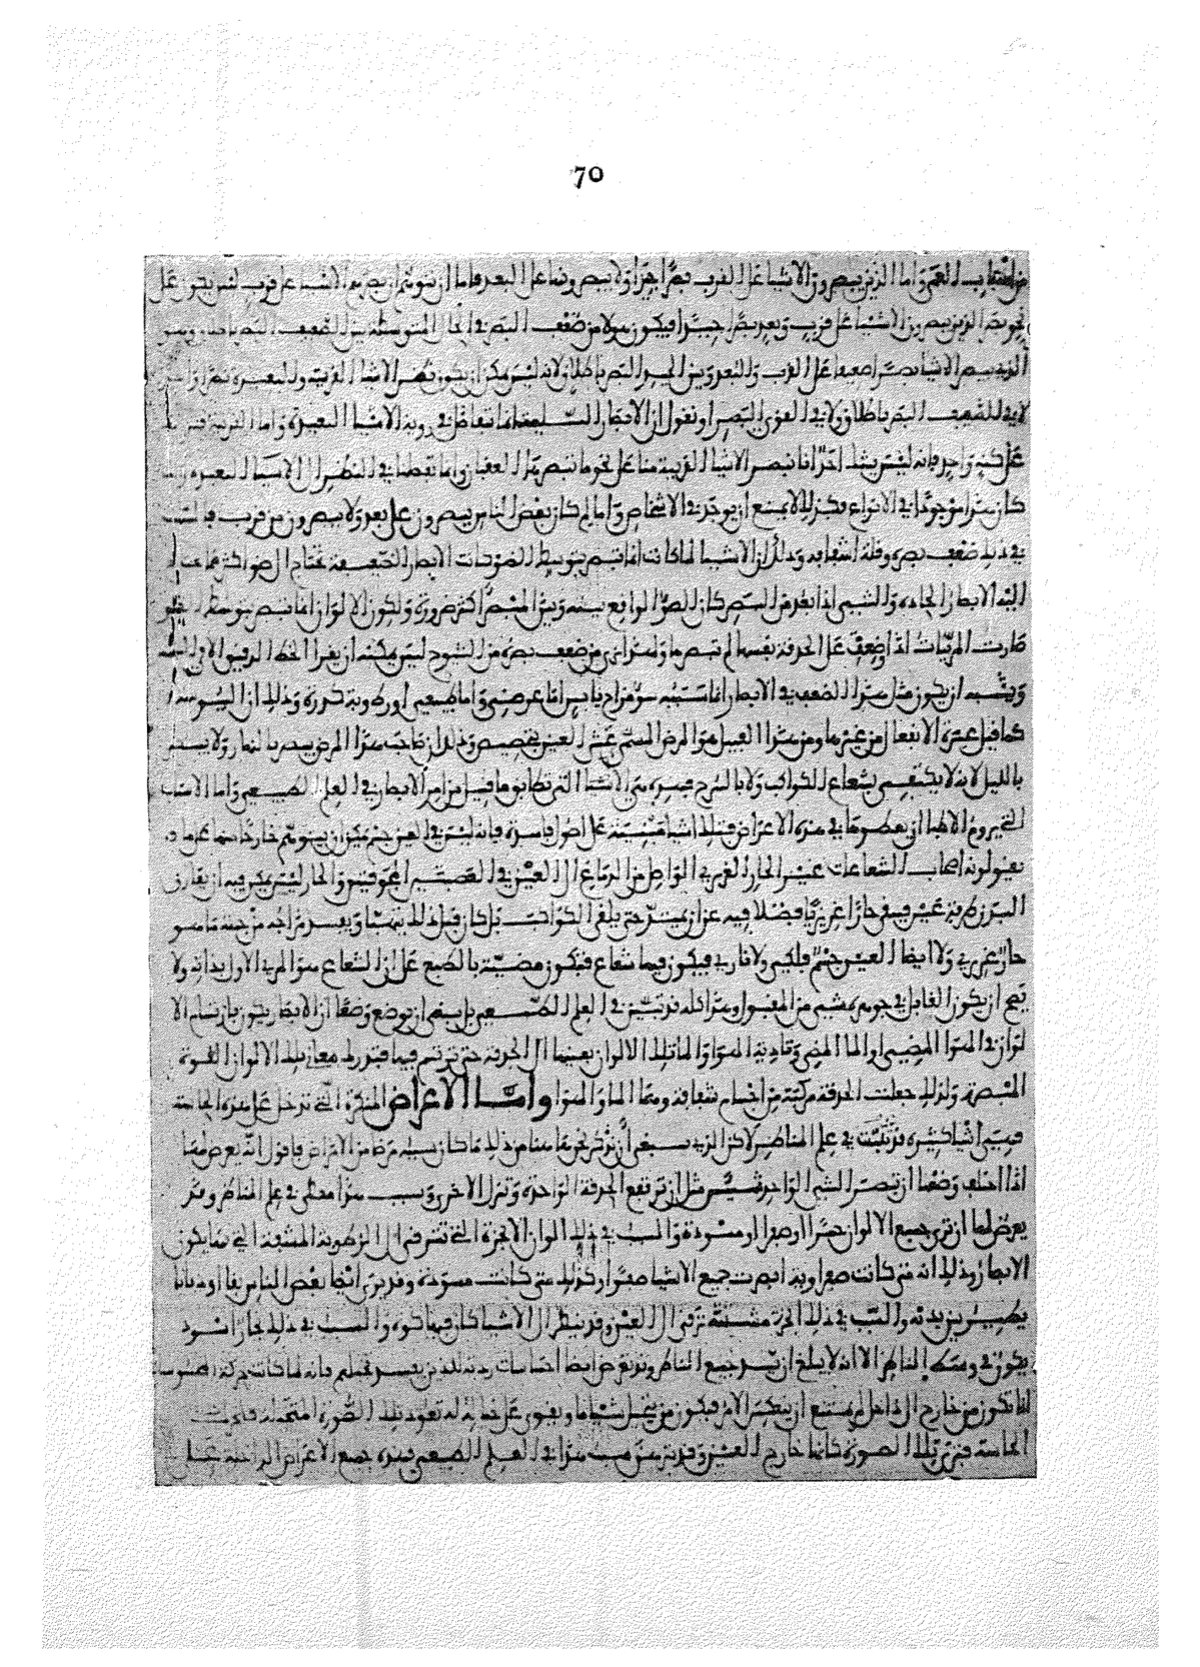 70
واما الذين يبصرون الاشيا على القرب بصرا جيدا ولا يبصرونها على البعد فاما ان نتوهم ان بصرهم الاشيا على قرب ليس يكون على
نحو بصر الذين يبصرون الاشيا على قرب وبعد بصرا جيدا فيكون هولا من ضعف البصر في الحال المتوسطة بين الضعيف البصر باطلاق وبين
الذي يبصر الاشيا بصرا ضعيفا على القرب والبعد وبين الجيد البصر باطلاق لانه ليس يمكن ان يكون بصر الاشيا القريبة والبعيدة
لا في الضعيف البصر باطلاق ولا في القوي البصر او نقول ان الابصار السليمة انما تتفاضل في روية الاشيا البعيدة واما القريبة
على كنه واحد فانه ليس يشك احد انا نبصر الاشيا القريبة منا على نحو ما تبصرها العقبان وانما تفضلنا في النظر الى الاشيا البعيدة
كان هذا موجودا في الانواع فكذلك لا يمتنع ان يوجد في الاشخاص واما لم كان بعض الناس يبصرون على بعد ولا يبصرون من قرب فالسبب
في ذلك ضعف بصره وقلة اشفافه وذلك ان الاشيا لما كانت انما تبصر بتوسط الضو كانت الابصار الضعيفة تحتاج الى ضو اكثر مما تحتاج
اليه الابصار الحادة والشي اذا بعد من البصر كان الضو الواقع بينه وبين المبصر اكثر ضرورة ولكون الالوان انما تبصر بتوسط الضو
صارت المريات اذا وضعت على الحدقة نفسها لم تبصرها ولهذا نرى من ضعف بصره من الشيوخ ليس يمكنه ان يقرا الخط الرقيق الا والى
ويشبه ان يكون مثل هذا الضعف في الابصار انما سببه سو مزاج يابس اما عرضي واما طبيعي او رطوبة كدرة وذلك ان اليبوسة
كما قيل عسرة الانفعال من غيرها ومن هذا القبيل هو المرض المسمى عند العين بخصيص وذلك ان صاحب هذا المرض يبصر بالنهار ولا يبصر
بالليل لانه لا يكتفي بشعاع الكواكب ولا بالسرج فهذه هي الاشيا التي تطابق ما قيل من امر الابصار في العلم الطبيعي واما الاسباب
التي يروم الاطبا ان يعطوها في هذه الاعراض فتلك اشيا مبنية على اصول فاسدة فانه ليس في العين جسم يمكن ان يتوهم خارجا منها
يقوله اصحاب الشعاعات غير الحار الغريزي الواصل من الدماغ الى العين في العصبتين المجوفتين والحار ليس يمكن فيه ان يفارق
البدن طرفة عين فيبقى حارا غريزيا فضلا فيه عن ان يمتد حتى يلقى الكواكب بل كان قبل ذلك يتهبا ويفسد مزاجه من جهة ما هو
حار غريزي ولا ايضا العين جسم فلكي ولا ناري فيكون فيها شعاع فتكون مضيئة بالطبع على ان الشعاع هو المري الاول بذاته ولا
يصح ان يكون القابل في جوهره شي من المقبول وهذا كله قد تبين في العلم الطبيعي بل ينبغي ان يوضع وضعا ان الابصار يكون بارتسام الا
لوان في الهوا المضي او الما المضي وتادية الهوا والما تلك الالوان بعينها الى الحدقة حتى ترتسم فيها فتدرك معاني تلك الالوان القوة
المبصرة ولذلك جعلت الحدقة مركبة من اجسام شفافة وهما الما والهوا واما الاعراض المنكرة التي تدخل على هذه الحاسة
فهي اشيا كثيرة قد تبينت في علم المناظر لاكن الذي ينبغي ان نذكر نحن ها هنا من ذلك ما كان سببه مرضا من الامراض فاقول انه يعرض لها
اذا اختلف وضعها ان تبصر الشي الواحد شيين مثل ان ترتفع الحدقة الواحدة وتنزل الاخرى وسبب هذا معطى في علم المناظر وقد
يعرض لها ان ترى جميع الالوان حمرا او صفرا او مسودة والسبب في ذلك الوان الابخرة التي تشرق الى الرطوبة المشفة التي بها يكون
الابصار وذلك انه متى كانت صفراوية ابصرت جميع الاشيا صفرا وكذلك متى كانت مسودة وقد يرى ايضا بعض الناس بقا او ذبابا
يطير بين يديه والسبب في ذلك ابخرة مشتتة ترقى الى العين وقد ينظر الى الاشيا كان فيها كوة والسبب في ذلك بخار اسود
يكون في وسط الناظر الا انه لا يبلغ ان يسد جميع الناظر وقد تعرض ايضا احساسات ردية للذين يفسد تخيلهم فانه لما كانت حركة المحسوسات
انما تكون من خارج الى داخل لم يمتنع ان ينعكس الامر فيكون من يتخيل شيا ما ويقوى على خياله تعود تلك الصورة المتخيلة
الحاسة فترى تلك الصورة كانها خارج العين وقد تبين سبب هذا في العلم الطبيعي فهذه جميع الاعراض الداخلة على